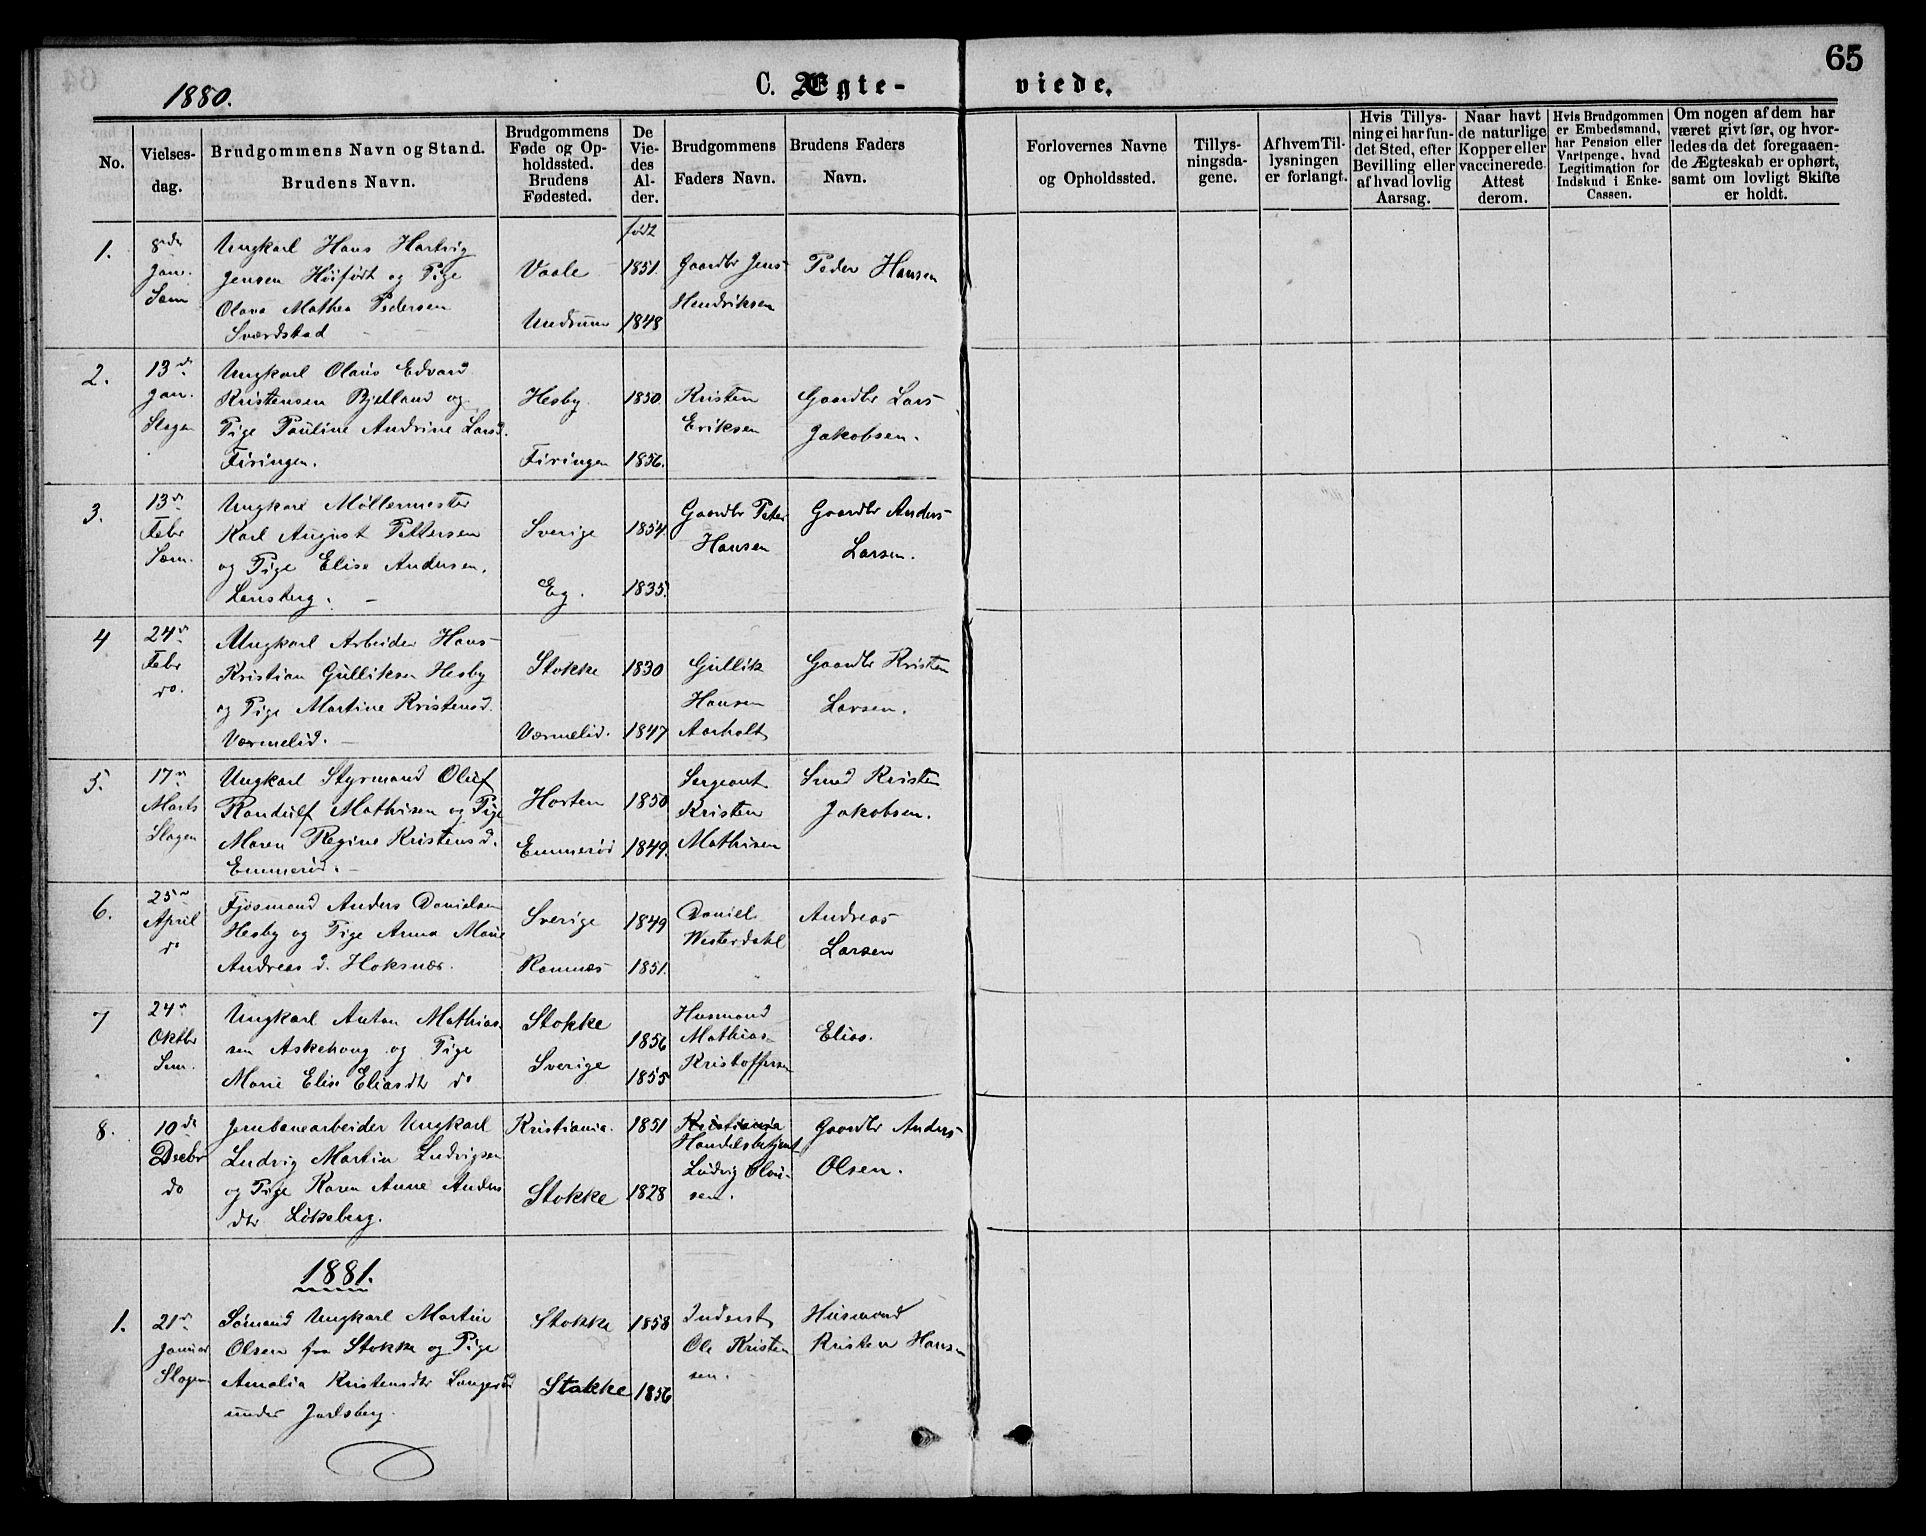 65
1880.
C. Ægte-
viede.
No.
Vielses-
dag.
Brudgommens Navn og Stand.
Brudens Navn.
Brudgommens
Føde og Op-
holdssted.
Brudens
Fødested.
De
Vie-
des
Al-
der.
Brudgommens
Faders Navn.
Brudens Faders
Navn.
Forlovernes Navne
og Opholdssted.
Tillys-
ningsda-
gene.
Af hvem Til-
lysningen
er forlangt.
Hvis Tillys-
ning ei har fun-
det Sted, efter
Bevilling eller
af hvad lovlig
Aarsag.
Naar havt
de naturlige
Kopper eller
vaccinerede.
Attest
derom.
Hvis Brudgommen
er Embedsmand,
har Pension eller
Vartpenge, hvad
Legitimation for
Indskud i Enke-
Cassen.
Om nogen af dem har
været givt før, og hvor-
ledes da det foregaaen-
de Ægteskab er ophørt,
samt om lovligt Skifte
er holdt.
født
1.
8de
Jan.
Sem
Ungkarl Hans Hartvig
Jensen og Pige
Olava Mathea Pedersen
Sværdstad
Vaale
Undrum
1851.
1848
Gaardbr Jens
Hendriksen
Peder Hansen
2.
13de
Jan.
Slagen
Ungkarl Olaus Edvard
Kristensen Bjelland og
Pige Pauline Andrine Larsd.
Firingen.
Hesby
Firingen
1850.
1856.
Kristen
Eriksen
Gaardbr Lars
Jakobsen.
3.
13de
Febr
Sem.
Ungkarl Møllermester
Karl August Pettersen
og Pige Elise Andersen.
Sverige
Eg.
1854.
1835.
Gaardbr Peter
Hansen
Gaardbr Anders
Larsen.
4
24de
Febr
do.
Ungkarl Arbeider Hans
Kristian Gulliksen Hesby
og Pige Martine Kristensd.
Værmelid.
Stokke
Værmelid.
1830
1847
Gullik
Hansen
Aarholt
Gaardbr Kristen
Larsen.
5.
17de
Marts
Slagen
Ungkarl Styrmand Oluf
Randulf Mathisen og Pige
Maren Regine Kristensd.
Emmerød.
Horten
Emmerød
1850
1849.
Sergeant
Kristen
Mathisen
Smed Kristen
Jakobsen.
6.
25de
April
do
Fjøsmand Anders Danielsen
Hesby og Pige Anna Marie
Andreas d. Hoksnær.
Sverige
Ramnæs
1849
1851.
Daniel
Westerdahl
Andreas
Larsen
7
24de
Oktbr
Sem.
Ungkarl Anton Mathias-
sen Askehoug og Pige
Marie Elise Eliasdtr do
Stokke
Sverige
1856
1855
Husmand
Mathias
Kristoffersen
Elias.
8.
10de
Decbr
do
Jernbanearbeider Ungkarl
Ludvig Martin Ludvigsen
og Pige Karen Anne Anders
dtr. Løkeberg.
Kristiania.
Stokke
1851
1828
Kristiania
Handelsbetjent
Ludvig Olau-
sen.
Gaardbr Anders
Olsen.
1881.
1.
21de
Januar
Slagen
Sømand Ungkarl Martin
Olsen fra Stokke og Pige
Amalia Kristensdtr
under Jarlsberg.
Stokke
Stokke
1858
1856
Inderst
Ole Kristen
sen.
Husmand
Kristen Hansen